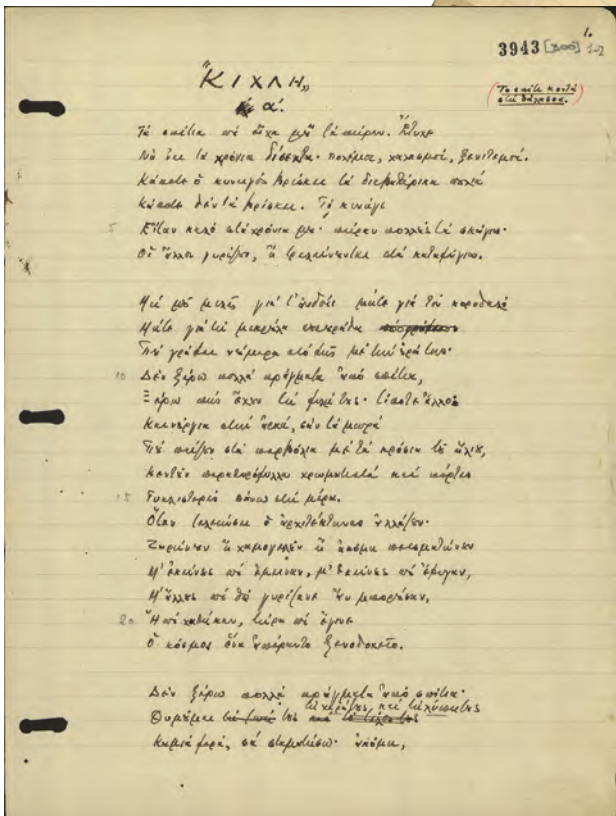 3943 [300] 1-2
1.
"ΚΙΧΛΗ"
α΄.
(Τὸ σπίτι κοντὰ
στὴ θάλασσα.)
Τὰ σπίτια ποὺ εἶχα μοῦ τὰ πῆραν. Ἔτυχε
Νὰ ᾽ναι τὰ χρόνια δίσεχτα· πολέμοι, χαλασμοί, ξενιτεμοί.
Κάποτε ὁ κυνηγὸς βρίσκει τὰ διαβατάρικα πουλιὰ
Κάποτε δὲν τὰ βρίσκει. Τὸ κυνήγι
5 Εἶταν καλὸ στὰ χρόνια μου· πῆραν πολλοὺς τὰ σκάγια·
Οἱ ἄλλοι γυρίζουν, ἢ τρελαίνουνται στὰ καταφύγια.
Μὴ μοῦ μιλᾶς γιὰ τ᾽ ἀηδόνι μήτε γιὰ τὸν κορυδαλὸ
Μήτε γιὰ τὴ μικρούλα σουσουράδα
Ποὺ γράφει νούμερα στὸ φῶς μὲ τὴν οὐρά της·
10 Δὲν ξέρω πολλὰ πράγματα ἀπὸ σπίτια,
Ξέρω πὼς ἔχουν τὴ φυλή τους· τίποτε ἄλλο
Καινούργια στὴν ἀρχή, σὰν τὰ μωρὰ
Ποὺ παίζουν στὰ περβόλια μὲ τὰ κρόσια τοῦ ἥλιου,
Κεντοῦν παραθυρόφυλλα χρωματιστὰ καὶ πόρτες
15 Γυαλιστερὲς πάνω στὴ μέρα.
Ὅταν τελειώσει ὁ ἀρχιτέκτονας ἀλλάζουν·
Ζαρώνουν ἢ χαμογελοῦν ἢ ἀκόμα πεισματώνουν
Μ᾽ ἐκείνους ποὺ ἔμειναν, μ᾽ ἐκείνους ποὺ ἔφυγαν,
Μ᾽ ἄλλους ποὺ θὰ γυρίζανε ἂν μποροῦσαν,
20 Ἢ ποὺ χαθῆκαν, τώρα ποὺ ἔγινε
Ὁ κόσμος ἕνα ἀπέραντο ξενοδοχεῖο.
Δὲν ξέρω πολλὰ πράγματα ἀπὸ σπίτια·
Θυμᾶμαι τὴ χαρά τους, καὶ τὴ λύπη τους
Καμιὰ φορά, σὰ σταματήσω· ἀκόμα,